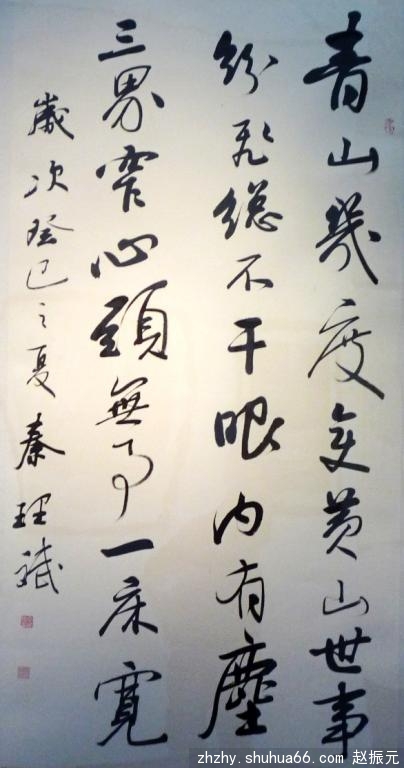 青山幾度变黄山世事
纷飛總不干眼内有塵
三界窄心頭無事一床寬
歲次癸巳之夏秦理斌
zhzhy.shuhua66.com 赵振元